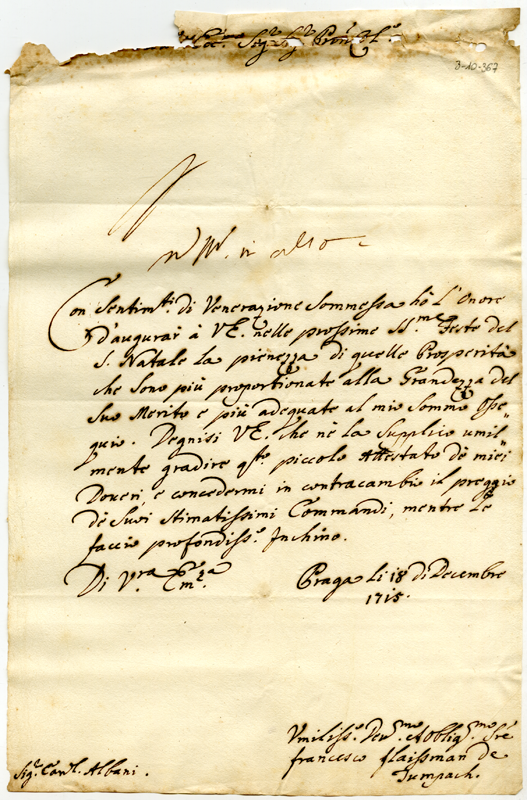 3-10-367
Con Sentim.ti di Venerazione Sommessa hò l'Onore
d'augurar à VE. nelle prossime SS.me Feste del
S. Natale la pienezza di quelle Prosperità
che sono più proportionate alla Grandezza del
Suo Merito e più adequate al mio Sommo Osse"
quio. Degnisi VE. che nè la Supplico umil"
mente gradire q.to piccolo Attestato dè miei
Doveri, e concedermi in contracambio il preggio
dè Suoi Stimatissimi Commandi, mentre Le
faccio profondiss.o Inchino.
Di V.ra Em.za
Praga li 18 di Decembre
1715.
Umiliss.o Dev.mo Obblig.mo Sre
francesco flaissman de
Tumpach.
Sig.r Card.l Albani.